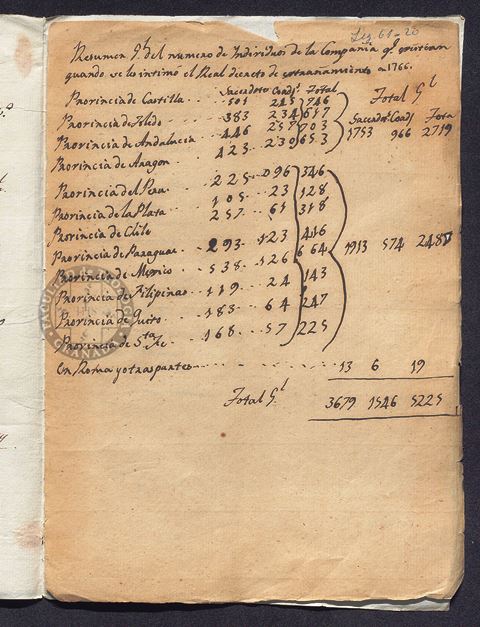 Leg 61-20
Resumen G.l del numero de Individuos de la Compañia q.e existian
quando se les intimó el Real decreto de estrañamiento en 1766.
Sacerdotes Coadj.s Total Total G.l
Provincia de Castilla 501 245 746 Sacerdo.s Coadj Tota
Provincia de Toledo 383 234 617 1753 966 2719
Provincia de Andalucia 446 257 703
Provincia de Aragon 423 230 653
Provincia del Peru 250 096 346
Provincia de la Plata 105 23 128
Provincia de Chile 257 61 318
Provincia de Paraguai 293 123 416
Provincia de Mexico 538 126 664 1913 574 2487
Provincia de Filipinas 119 24 143
Provincia de Quito 183 64 247
Provincia de S.ta Fe 168 57 225
En Roma y otras partes 13 6 19
Total G.l 3679 1546 5225